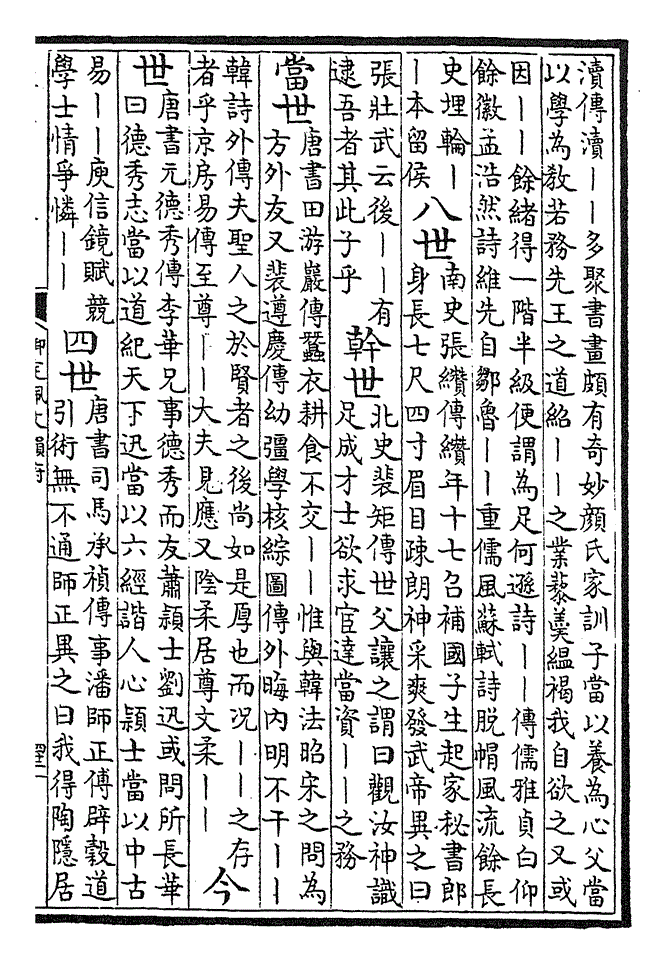 瀆傳瀆丨丨多聚書畫頗有奇妙顔氏家訓子當以養為心父當
以學為敎若務先王之道紹丨丨之業藜羮緼褐我自欲之又或
因丨丨餘緒得一階半級便謂為足何遜詩丨丨傳儒雅貞白仰
餘徽孟浩然詩維先自鄒魯丨丨重儒風蘇軾詩脱帽風流餘長
史埋輪丨
丨本留侯
八世
南史張纘傳纘年十七召補國子生起家秘書郎
身長七尺四寸眉目疎朗神采爽發武帝異之曰
張壯武云後丨丨有
逮吾者其此子乎
幹世
北史裴矩傳世父讓之謂曰觀汝神識
足成才士欲求宦達當資丨丨之務
當世
唐書田游巖傳蠶衣耕食不交丨丨惟與韓法昭宋之問為
方外友又裴遵慶傳幼彊學核綜圖傳外晦内明不干丨丨
韓詩外傳夫聖人之於賢者之後尚如是厚也而況丨丨之存
者乎京房易傳至尊丨丨大夫見應又陰柔居尊文柔丨丨
今
世
唐書元德秀傳李華兄事德秀而友蕭頴士劉迅或問所長華
曰德秀志當以道紀天下迅當以六經諧人心頴士當以中古
易丨丨庾信鏡賦競
學士情爭憐丨丨
四世
唐書司馬承禎傳事潘師正傳辟穀道
引術無不通師正異之曰我得陶隱居